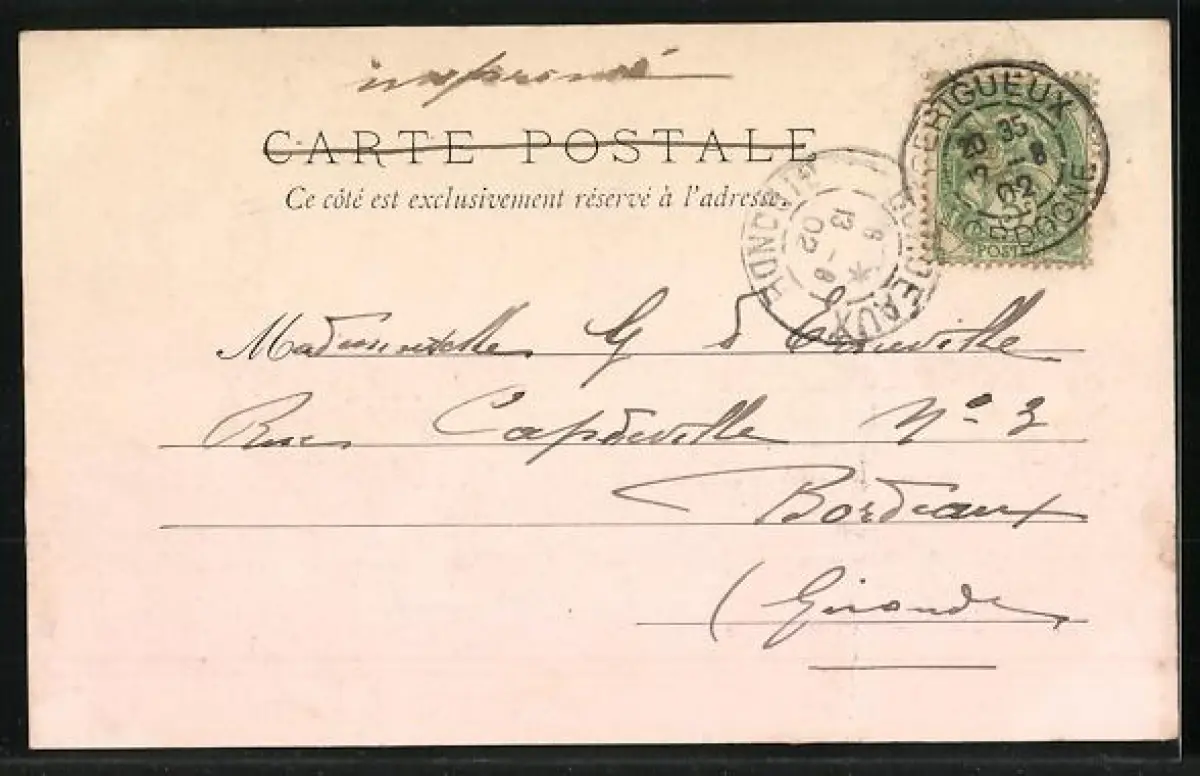 imprimé
CARTE POSTALE
Ce côté est exclusivement réservé à l'adresse.
PERIGUEUX
20 35
02
DORDOGNE
POSTE
BORDEAUX
8
13 - 8
02
GIRONDE
Mademoiselle G d
Rue Capdeville N° 3
Bordeaux
(Gironde